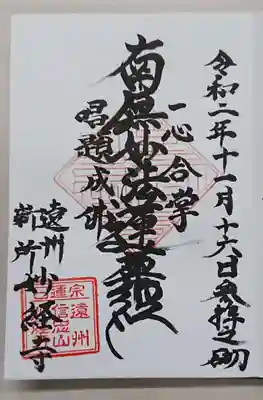 令和二年十一月十六日参拝之砌
一心合掌
南無妙法蓮華経
唱題成佛
遠州
新所
妙経寺